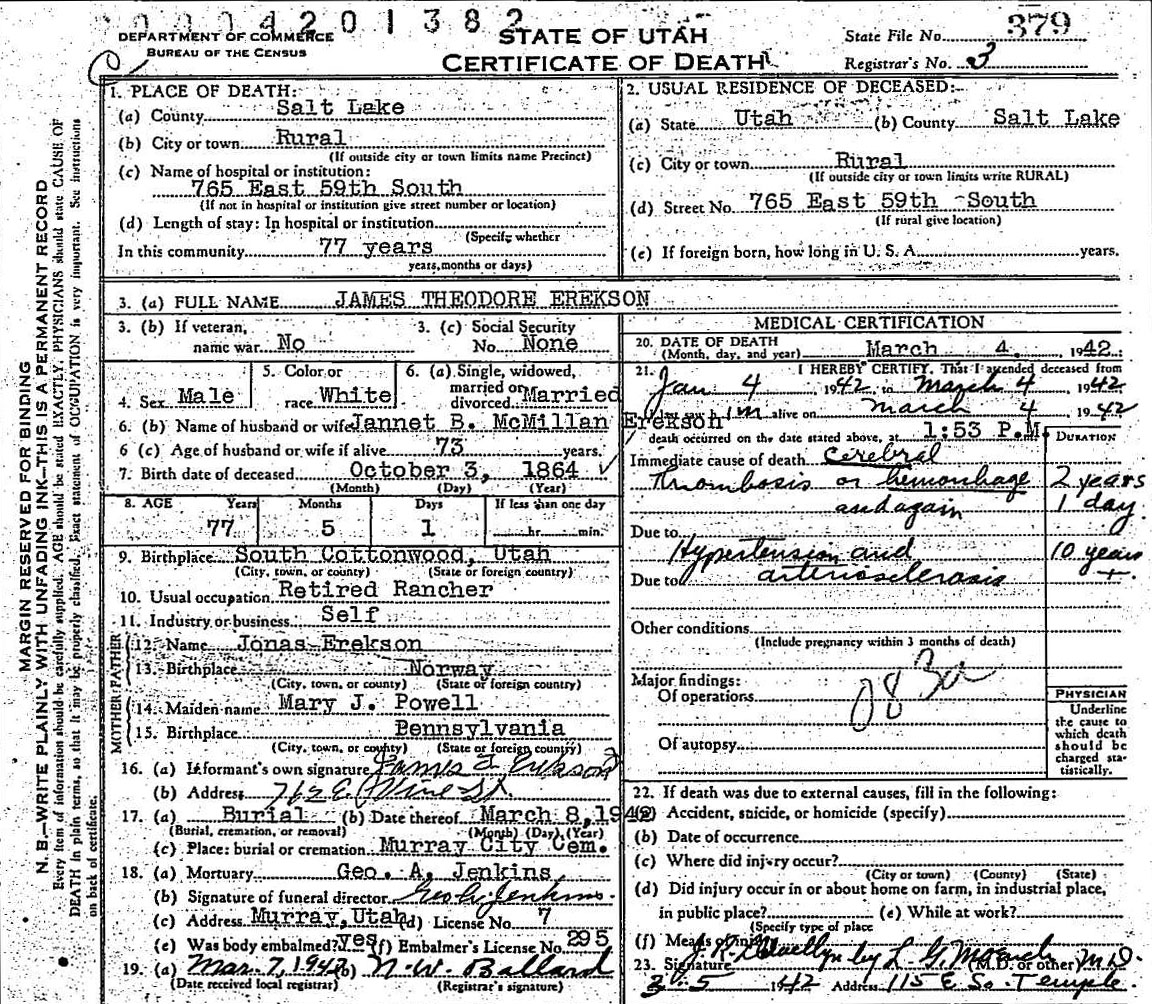 0004201382
DEPARTMENT OF COMMERCE
BUREAU OF THE CENSUS
STATE OF UTAH
CERTIFICATE OF DEATH
State File No. 379
Registrar's No. 3
MARGIN RESERVED FOR BINDING
N. B.—WRITE PLAINLY WITH UNFADING INK—THIS IS A PERMANENT RECORD
Every item of information should be carefully supplied. AGE should be stated EXACTLY. PHYSICIANS should state CAUSE OF
DEATH in plain terms, so that it may be properly classified. Exact statement of OCCUPATION is very important. See instructions
on back of certificate.
1. PLACE OF DEATH:
(a) County Salt Lake
(b) City or town Rural
(If outside city or town limits name Precinct)
(c) Name of hospital or institution:
765 East 59th South
(If not in hospital or institution give street number or location)
(d) Length of stay: In hospital or institution
(Specify whether
In this community 77 years
years, months or days)
2. USUAL RESIDENCE OF DECEASED:
(a) State Utah (b) County Salt Lake
(c) City or town Rural
(If outside city or town limits write RURAL)
(d) Street No. 765 East 59th South
(If rural give location)
(e) If foreign born, how long in U. S. A. years.
3. (a) FULL NAME JAMES THEODORE EREKSON
3. (b) If veteran, 3. (c) Social Security
name war No No. None
4. Sex Male 5. Color or race White 6. (a) Single, widowed, married or divorced Married
6. (b) Name of husband or wife Jannet B. McMillan Erekson
6 (c) Age of husband or wife if alive 73 years.
7. Birth date of deceased October 3, 1864
(Month) (Day) (Year)
8. AGE Years Months Days If less than one day
77 5 1 hr. min.
9. Birthplace South Cottonwood, Utah
(City, town, or county) (State or foreign country)
10. Usual occupation Retired Rancher
11. Industry or business Self
FATHER
12. Name Jonas Erekson
13. Birthplace Norway
(City, town, or county) (State or foreign country)
MOTHER
14. Maiden name Mary J. Powell
15. Birthplace Pennsylvania
(City, town, or county) (State or foreign country)
16. (a) Informant's own signature James T. Erekson
(b) Address 762 E Vine St.
17. (a) Burial (b) Date thereof March 8, 1942
(Burial, cremation, or removal) (Month) (Day) (Year)
(c) Place: burial or cremation Murray City Cem.
18. (a) Mortuary Geo. A. Jenkins
(b) Signature of funeral director Geo A Jenkins
(c) Address Murray, Utah (d) License No. 7
(e) Was body embalmed? yes (f) Embalmer's License No. 295
19. (a) Mar. 7, 1942 (b) N. W. Ballard
(Date received local registrar) (Registrar's signature)
MEDICAL CERTIFICATION
20. DATE OF DEATH
(Month, day, and year) March 4, 1942.
21. I HEREBY CERTIFY, That I attended deceased from
Jan 4 1942 to March 4, 1942
I last saw him alive on March 4, 1942
death occurred on the date stated above, at 1:53 P.M. DURATION
Immediate cause of death cerebral
thrombosis or hemorrhage 2 years
and again 1 day.
Due to
Hypertension and 10 years
Due to arteriosclerosis +
Other conditions
(Include pregnancy within 3 months of death)
083a
Major findings:
Of operations
Of autopsy
PHYSICIAN
Underline
the cause to
which death
should be
charged sta-
tistically.
22. If death was due to external causes, fill in the following:
(a) Accident, suicide, or homicide (specify)
(b) Date of occurrence
(c) Where did injury occur?
(City or town) (County) (State)
(d) Did injury occur in or about home on farm, in industrial place,
in public place? (e) While at work?
(Specify type of place
(f) Means of injury
23. Signature J. R. Llewellyn by L. G. (M.D. or other) M.D.
3-5 1942 Address 115 E So. Temple.